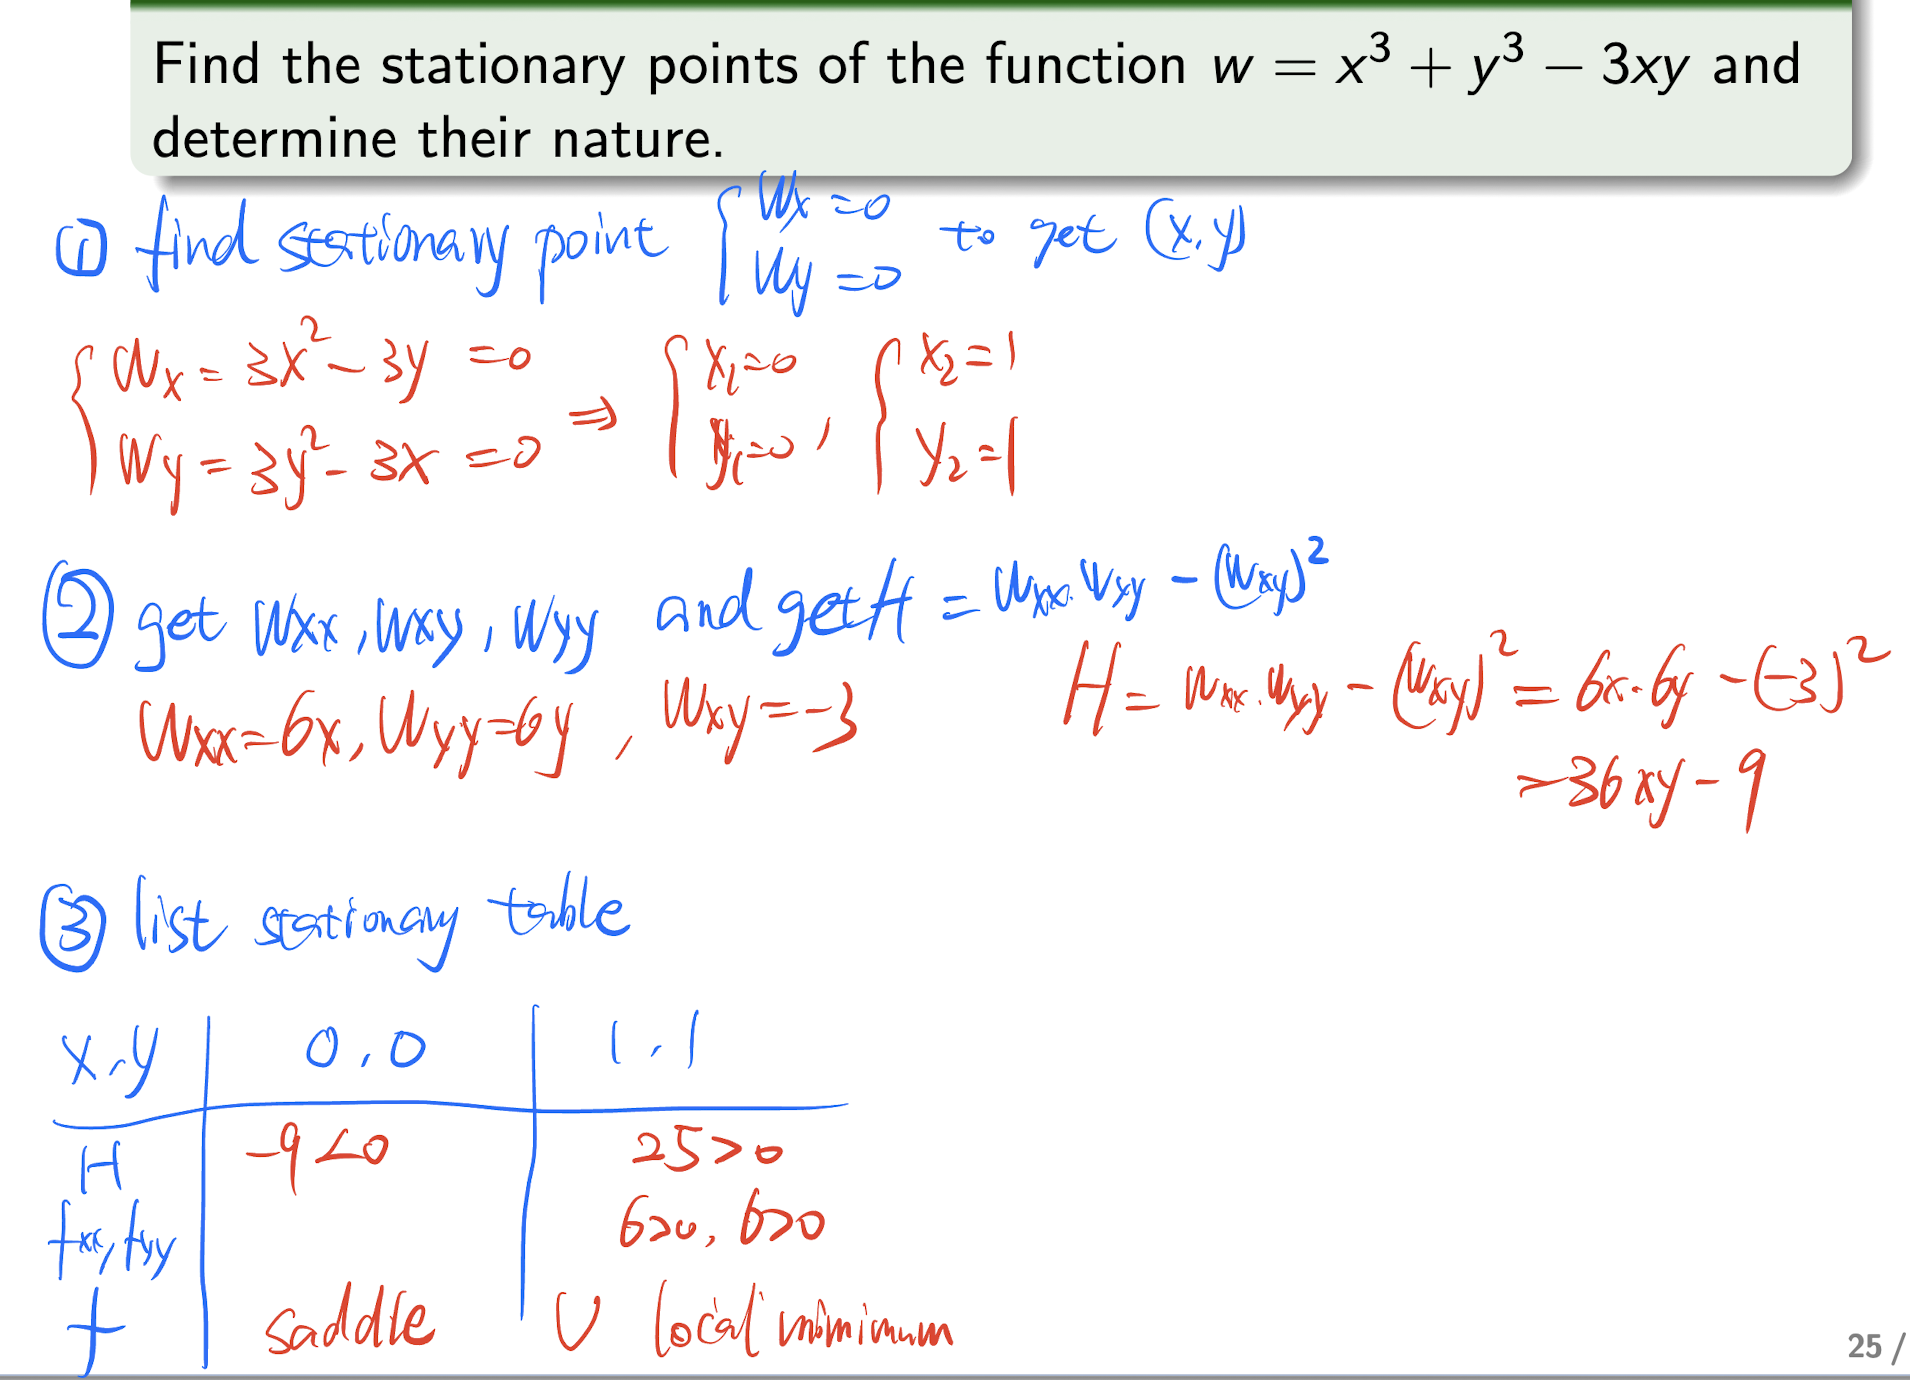 Find the stationary points of the function w = x³ + y³ − 3xy and
determine their nature.
① find stationary point { Wx = 0, Wy = 0 to get (x, y)
{ Wx = 3x² − 3y = 0 ⇒ { x₁ = 0 , { x₂ = 1
Wy = 3y² − 3x = 0 y₁ = 0 y₂ = 1
② get Wxx, Wxy, Wyy and get H = Wxx · Wxy − (Wxy)²
Wxx = 6x, Wyy = 6y, Wxy = −3
H = Wxx · Wyy − (Wxy)² = 6x · 6y − (−3)²
= 36xy − 9
③ list stationary table
x, y 0, 0 1, 1
H −9 < 0 25 > 0
fxx, fyy 6>0, 6>0
f saddle ∪ local mimimum
25 /